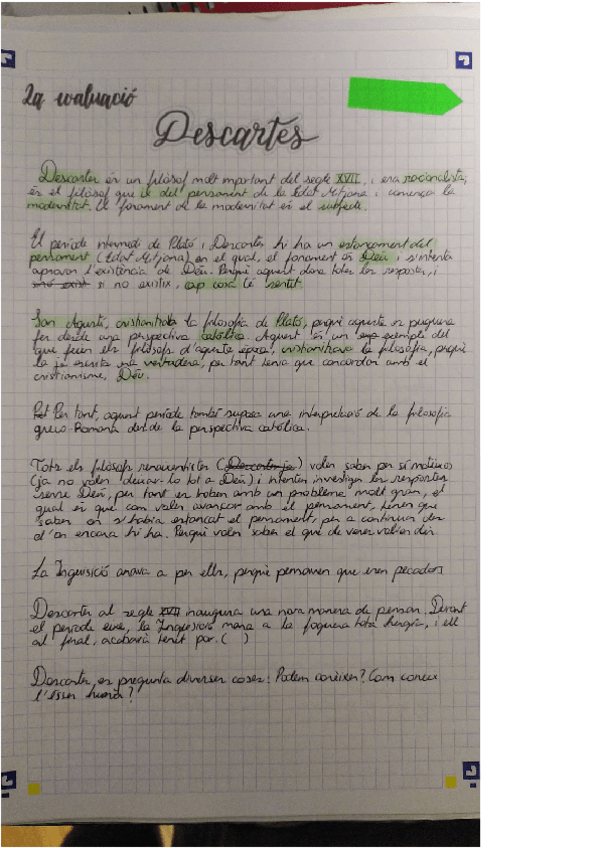 2a avaluació
Descartes
Descartes és un filòsof molt important del segle XVII, i era racionalista,
és el filòsof que ix del pensament de la Edat Mitjana i comença la
modernitat. El fonament de la modernitat és el subjecte.
El període intermedi de Plató i Descartes, hi ha un estancament del
pensament (Edat Mitjana) en el qual, el fonament és Déu i s'intenta
aprovar l'existència de Déu. Perquè aquest dona totes les respostes, i
si no existix, cap cosa té sentit.
San Agustí, cristianitzà la filosofia de Plató, perquè aquesta es puguera
fer desde una perspectiva catòlica. Aquest és un exemple del
que feien els filòsofs d'aquesta època, cristianitzava la filosofia, perquè
la fe cristita era vertadera, per tant tenia que concordar amb el
cristianisme, Déu.
Per tant, aquest període també suposa una interpretació de la filosofia
greco-Romana desde la perspectiva catòlica.
Tots els filòsofs renaixentistes (Descartes ja) volen saber per sí mateixos
(ja no volen deixar-lo tot a Déu) i intenten investigar les respostes
sense Déu, per tant es troben amb un problema molt gran, el
qual és que com volen avançar amb el pensament, tenen que
saber on s'habia estancat el pensament, per a continuar des
d'on encara hi ha. Perquè volen saber el què de veres volien dir.
La Inquisició anava a per ells, perquè pensaven que eren pecadors
Descartes al segle XVII inaugura una nova manera de pensar. Durant
el període eixe, la Inquisició mana a la foguera tots heretges, i ell
al final, acabarà tenint por. ( )
Descartes, es pregunta diverses coses: Podem conèixer? Com coneix
l'ésser humà?